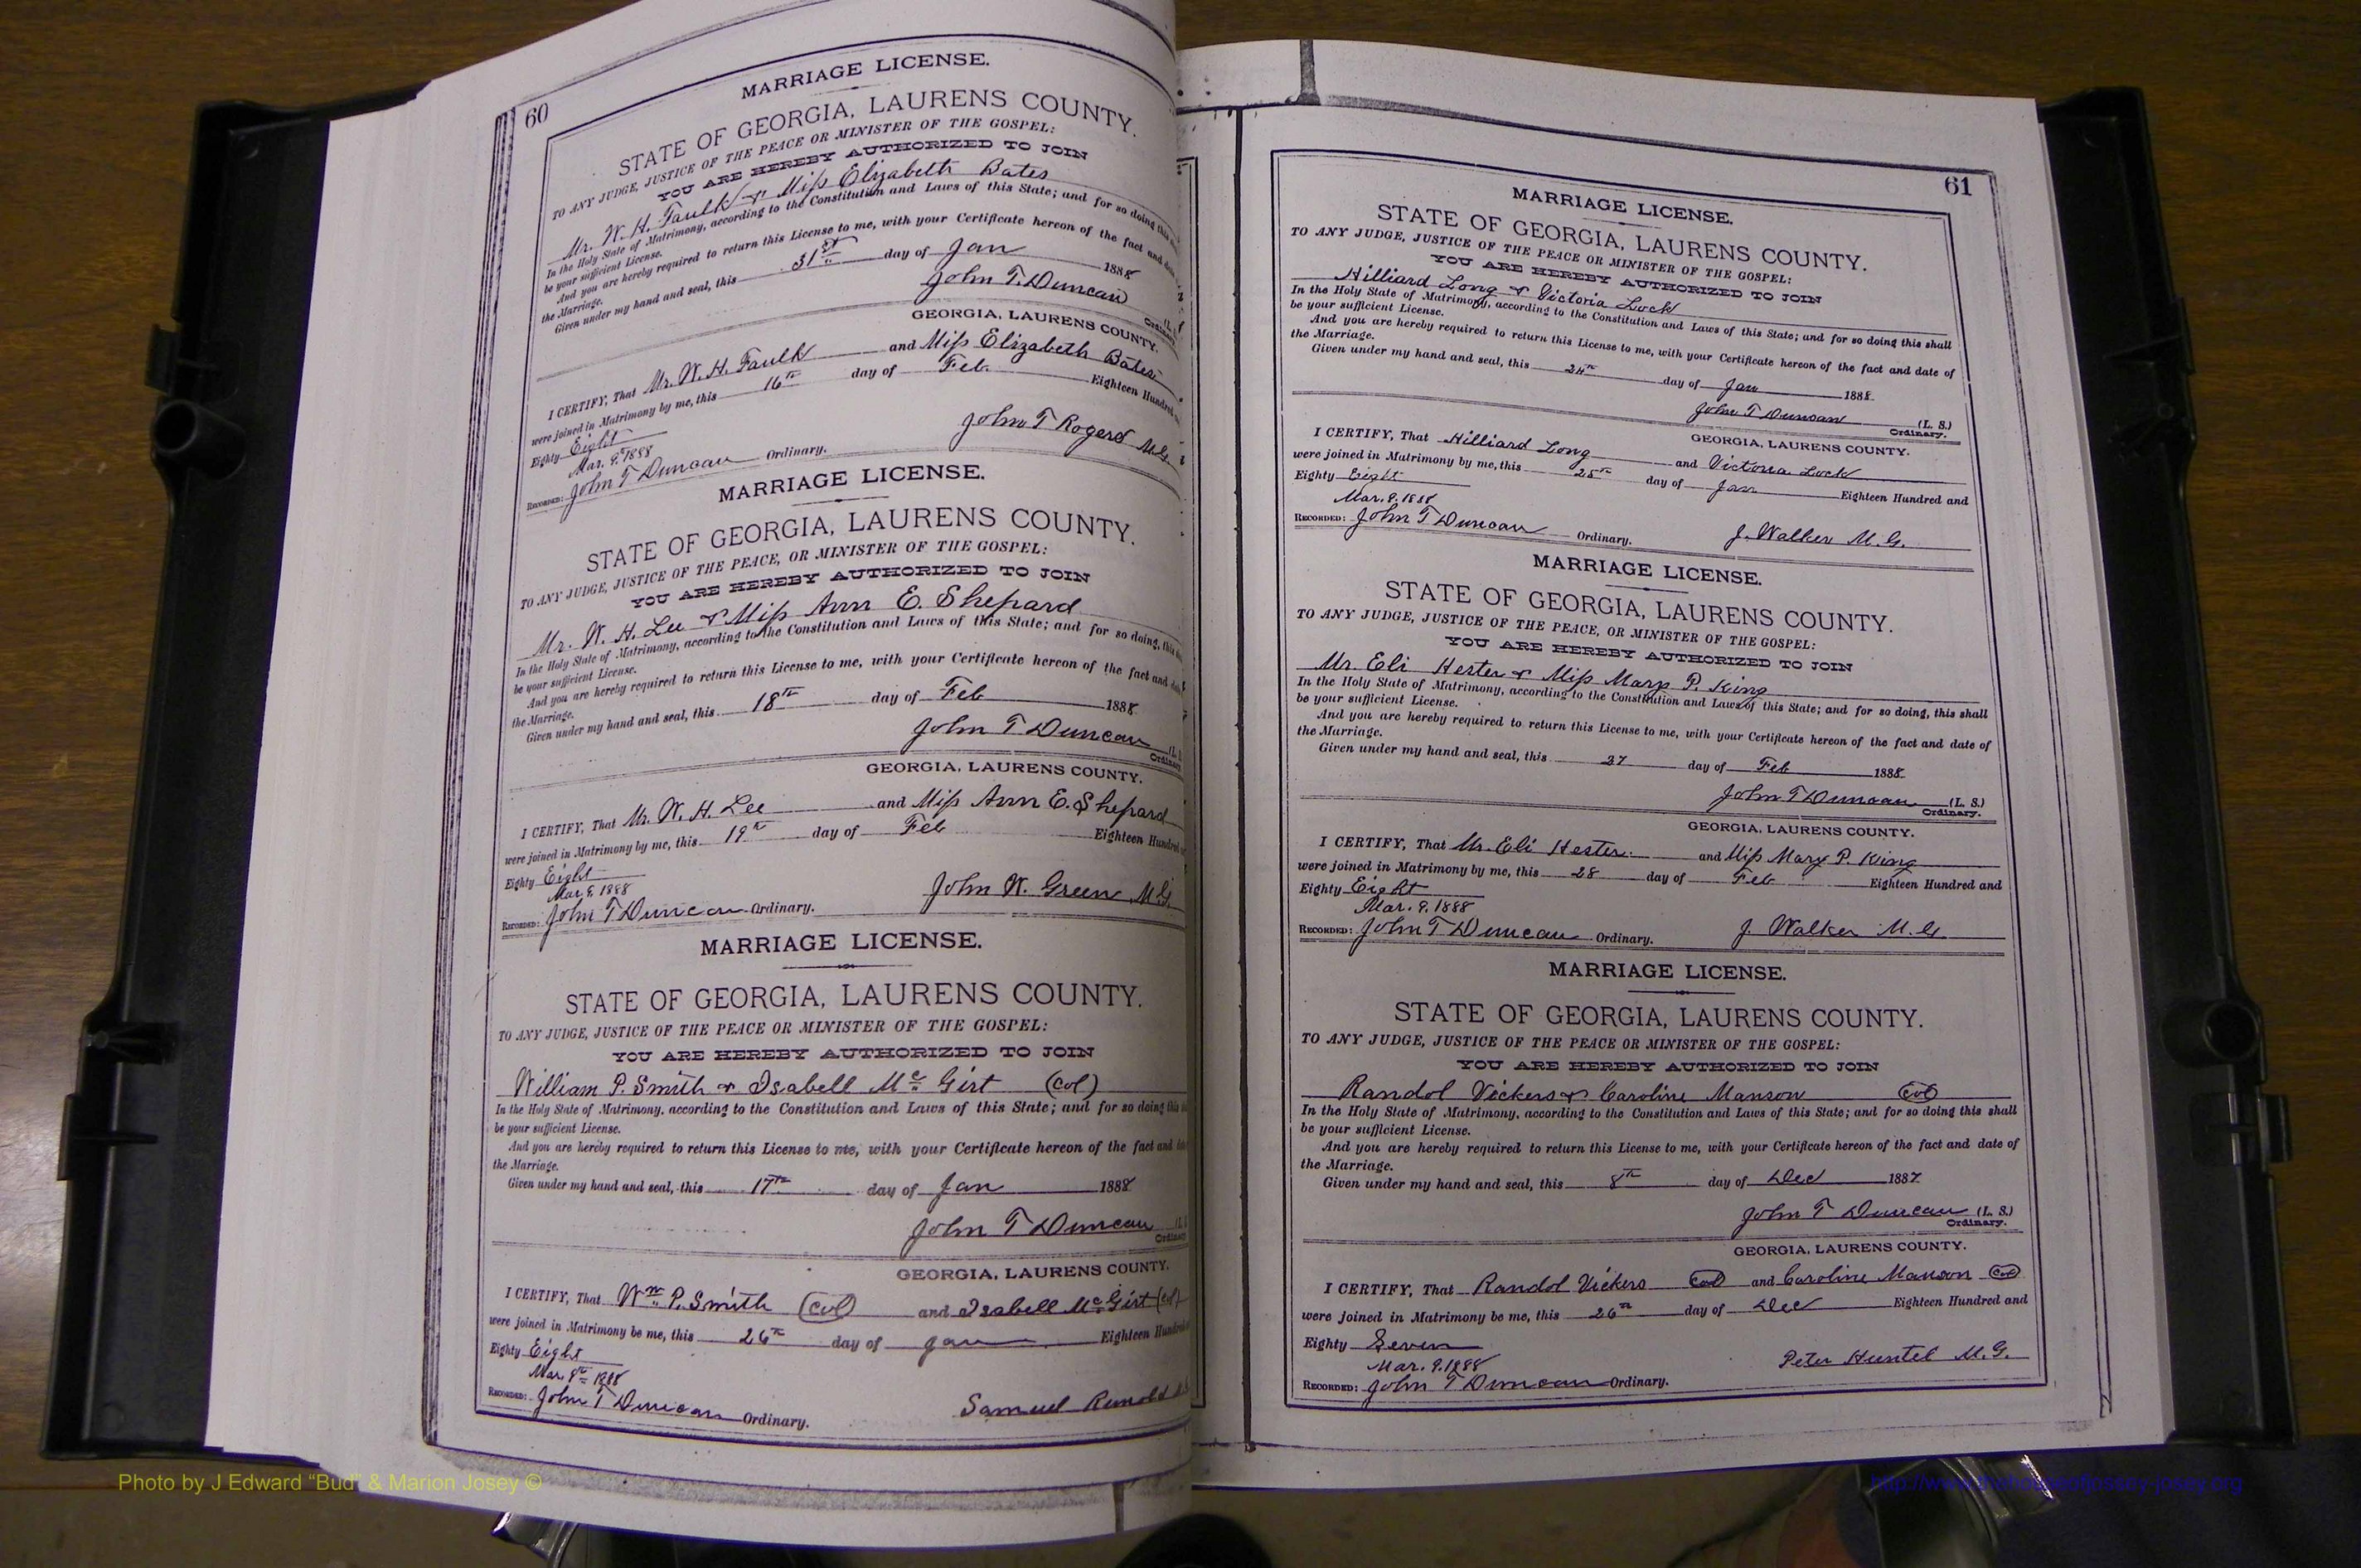 60
MARRIAGE LICENSE.
STATE OF GEORGIA, LAURENS COUNTY.
TO ANY JUDGE, JUSTICE OF THE PEACE OR MINISTER OF THE GOSPEL:
YOU ARE HEREBY AUTHORIZED TO JOIN
Mr. W. H. Faulk & Miss Elizabeth Bates
In the Holy State of Matrimony, according to the Constitution and Laws of this State; and for so doing this
be your sufficient License.
And you are hereby required to return this License to me, with your Certificate hereon of the fact and
the Marriage.
Given under my hand and seal, this 31st day of Jan 1888
John T. Duncan
Ordinary
GEORGIA, LAURENS COUNTY.
I CERTIFY, That Mr. W. H. Faulk and Miss Elizabeth Bates
were joined in Matrimony by me, this 16th day of Feb. Eighteen Hundred
Eighty Eight
Mar. 9. 1888
John T Rogers M.G.
RECORDED: John T Duncan Ordinary.
MARRIAGE LICENSE.
STATE OF GEORGIA, LAURENS COUNTY.
TO ANY JUDGE, JUSTICE OF THE PEACE, OR MINISTER OF THE GOSPEL:
YOU ARE HEREBY AUTHORIZED TO JOIN
Mr. W. H. Lee & Miss Ann E. Shepard
In the Holy State of Matrimony, according to the Constitution and Laws of this State; and for so doing, this
be your sufficient License.
And you are hereby required to return this License to me, with your Certificate hereon of the fact and
the Marriage.
Given under my hand and seal, this 18th day of Feb 1888
John T Duncan
Ordinary
GEORGIA, LAURENS COUNTY.
I CERTIFY, That Mr. W. H. Lee and Miss Ann E. Shepard
were joined in Matrimony by me, this 19th day of Feb Eighteen Hundred
Eighty Eight
Mar. 9. 1888
John W. Green M.G.
RECORDED: John T Duncan Ordinary.
MARRIAGE LICENSE.
STATE OF GEORGIA, LAURENS COUNTY.
TO ANY JUDGE, JUSTICE OF THE PEACE OR MINISTER OF THE GOSPEL:
YOU ARE HEREBY AUTHORIZED TO JOIN
William P. Smith & Isabell Mc Girt (Col)
In the Holy State of Matrimony, according to the Constitution and Laws of this State; and for so doing this
be your sufficient License.
And you are hereby required to return this License to me, with your Certificate hereon of the fact and
the Marriage.
Given under my hand and seal, this 17th day of Jan 1888
John T Duncan
Ordinary
GEORGIA, LAURENS COUNTY.
I CERTIFY, That Wm P. Smith (Col) and Isabell Mc Girt (Col)
were joined in Matrimony be me, this 26th day of Jan Eighteen Hundred
Eighty Eight
Mar. 9th 1888
RECORDED: John T Duncan Ordinary.
Samuel
61
MARRIAGE LICENSE.
STATE OF GEORGIA, LAURENS COUNTY.
TO ANY JUDGE, JUSTICE OF THE PEACE OR MINISTER OF THE GOSPEL:
YOU ARE HEREBY AUTHORIZED TO JOIN
Hilliard Long & Victoria Lock
In the Holy State of Matrimony, according to the Constitution and Laws of this State; and for so doing this shall
be your sufficient License.
And you are hereby required to return this License to me, with your Certificate hereon of the fact and date of
the Marriage.
Given under my hand and seal, this 24th day of Jan 1888
John T Duncan (L. S.)
Ordinary.
GEORGIA, LAURENS COUNTY.
I CERTIFY, That Hilliard Long and Victoria Lock
were joined in Matrimony by me, this 25th day of Jan Eighteen Hundred and
Eighty Eight
Mar. 9. 1888
RECORDED: John T Duncan Ordinary. J. Walker M.G.
MARRIAGE LICENSE.
STATE OF GEORGIA, LAURENS COUNTY.
TO ANY JUDGE, JUSTICE OF THE PEACE, OR MINISTER OF THE GOSPEL:
YOU ARE HEREBY AUTHORIZED TO JOIN
Mr. Eli Hester & Miss Mary P. King
In the Holy State of Matrimony, according to the Constitution and Laws of this State; and for so doing, this shall
be your sufficient License.
And you are hereby required to return this License to me, with your Certificate hereon of the fact and date of
the Marriage.
Given under my hand and seal, this 27 day of Feb 1888
John T Duncan (L. S.)
Ordinary.
GEORGIA, LAURENS COUNTY.
I CERTIFY, That Mr. Eli Hester and Miss Mary P. King
were joined in Matrimony by me, this 28 day of Feb Eighteen Hundred and
Eighty Eight
Mar. 9. 1888
RECORDED: John T Duncan Ordinary. J. Walker M.G.
MARRIAGE LICENSE.
STATE OF GEORGIA, LAURENS COUNTY.
TO ANY JUDGE, JUSTICE OF THE PEACE OR MINISTER OF THE GOSPEL:
YOU ARE HEREBY AUTHORIZED TO JOIN
Randol Vickers & Caroline Manson Col
In the Holy State of Matrimony, according to the Constitution and Laws of this State; and for so doing this shall
be your sufficient License.
And you are hereby required to return this License to me, with your Certificate hereon of the fact and date of
the Marriage.
Given under my hand and seal, this 8th day of Dec 1887
John T Duncan (L. S.)
Ordinary.
GEORGIA, LAURENS COUNTY.
I CERTIFY, That Randol Vickers Col and Caroline Manson Col
were joined in Matrimony be me, this 26th day of Dec Eighteen Hundred and
Eighty Seven
Mar. 9. 1888
Peter Huntel M.G.
RECORDED: John T Duncan Ordinary.
Photo by J Edward “Bud” & Marion Josey ©